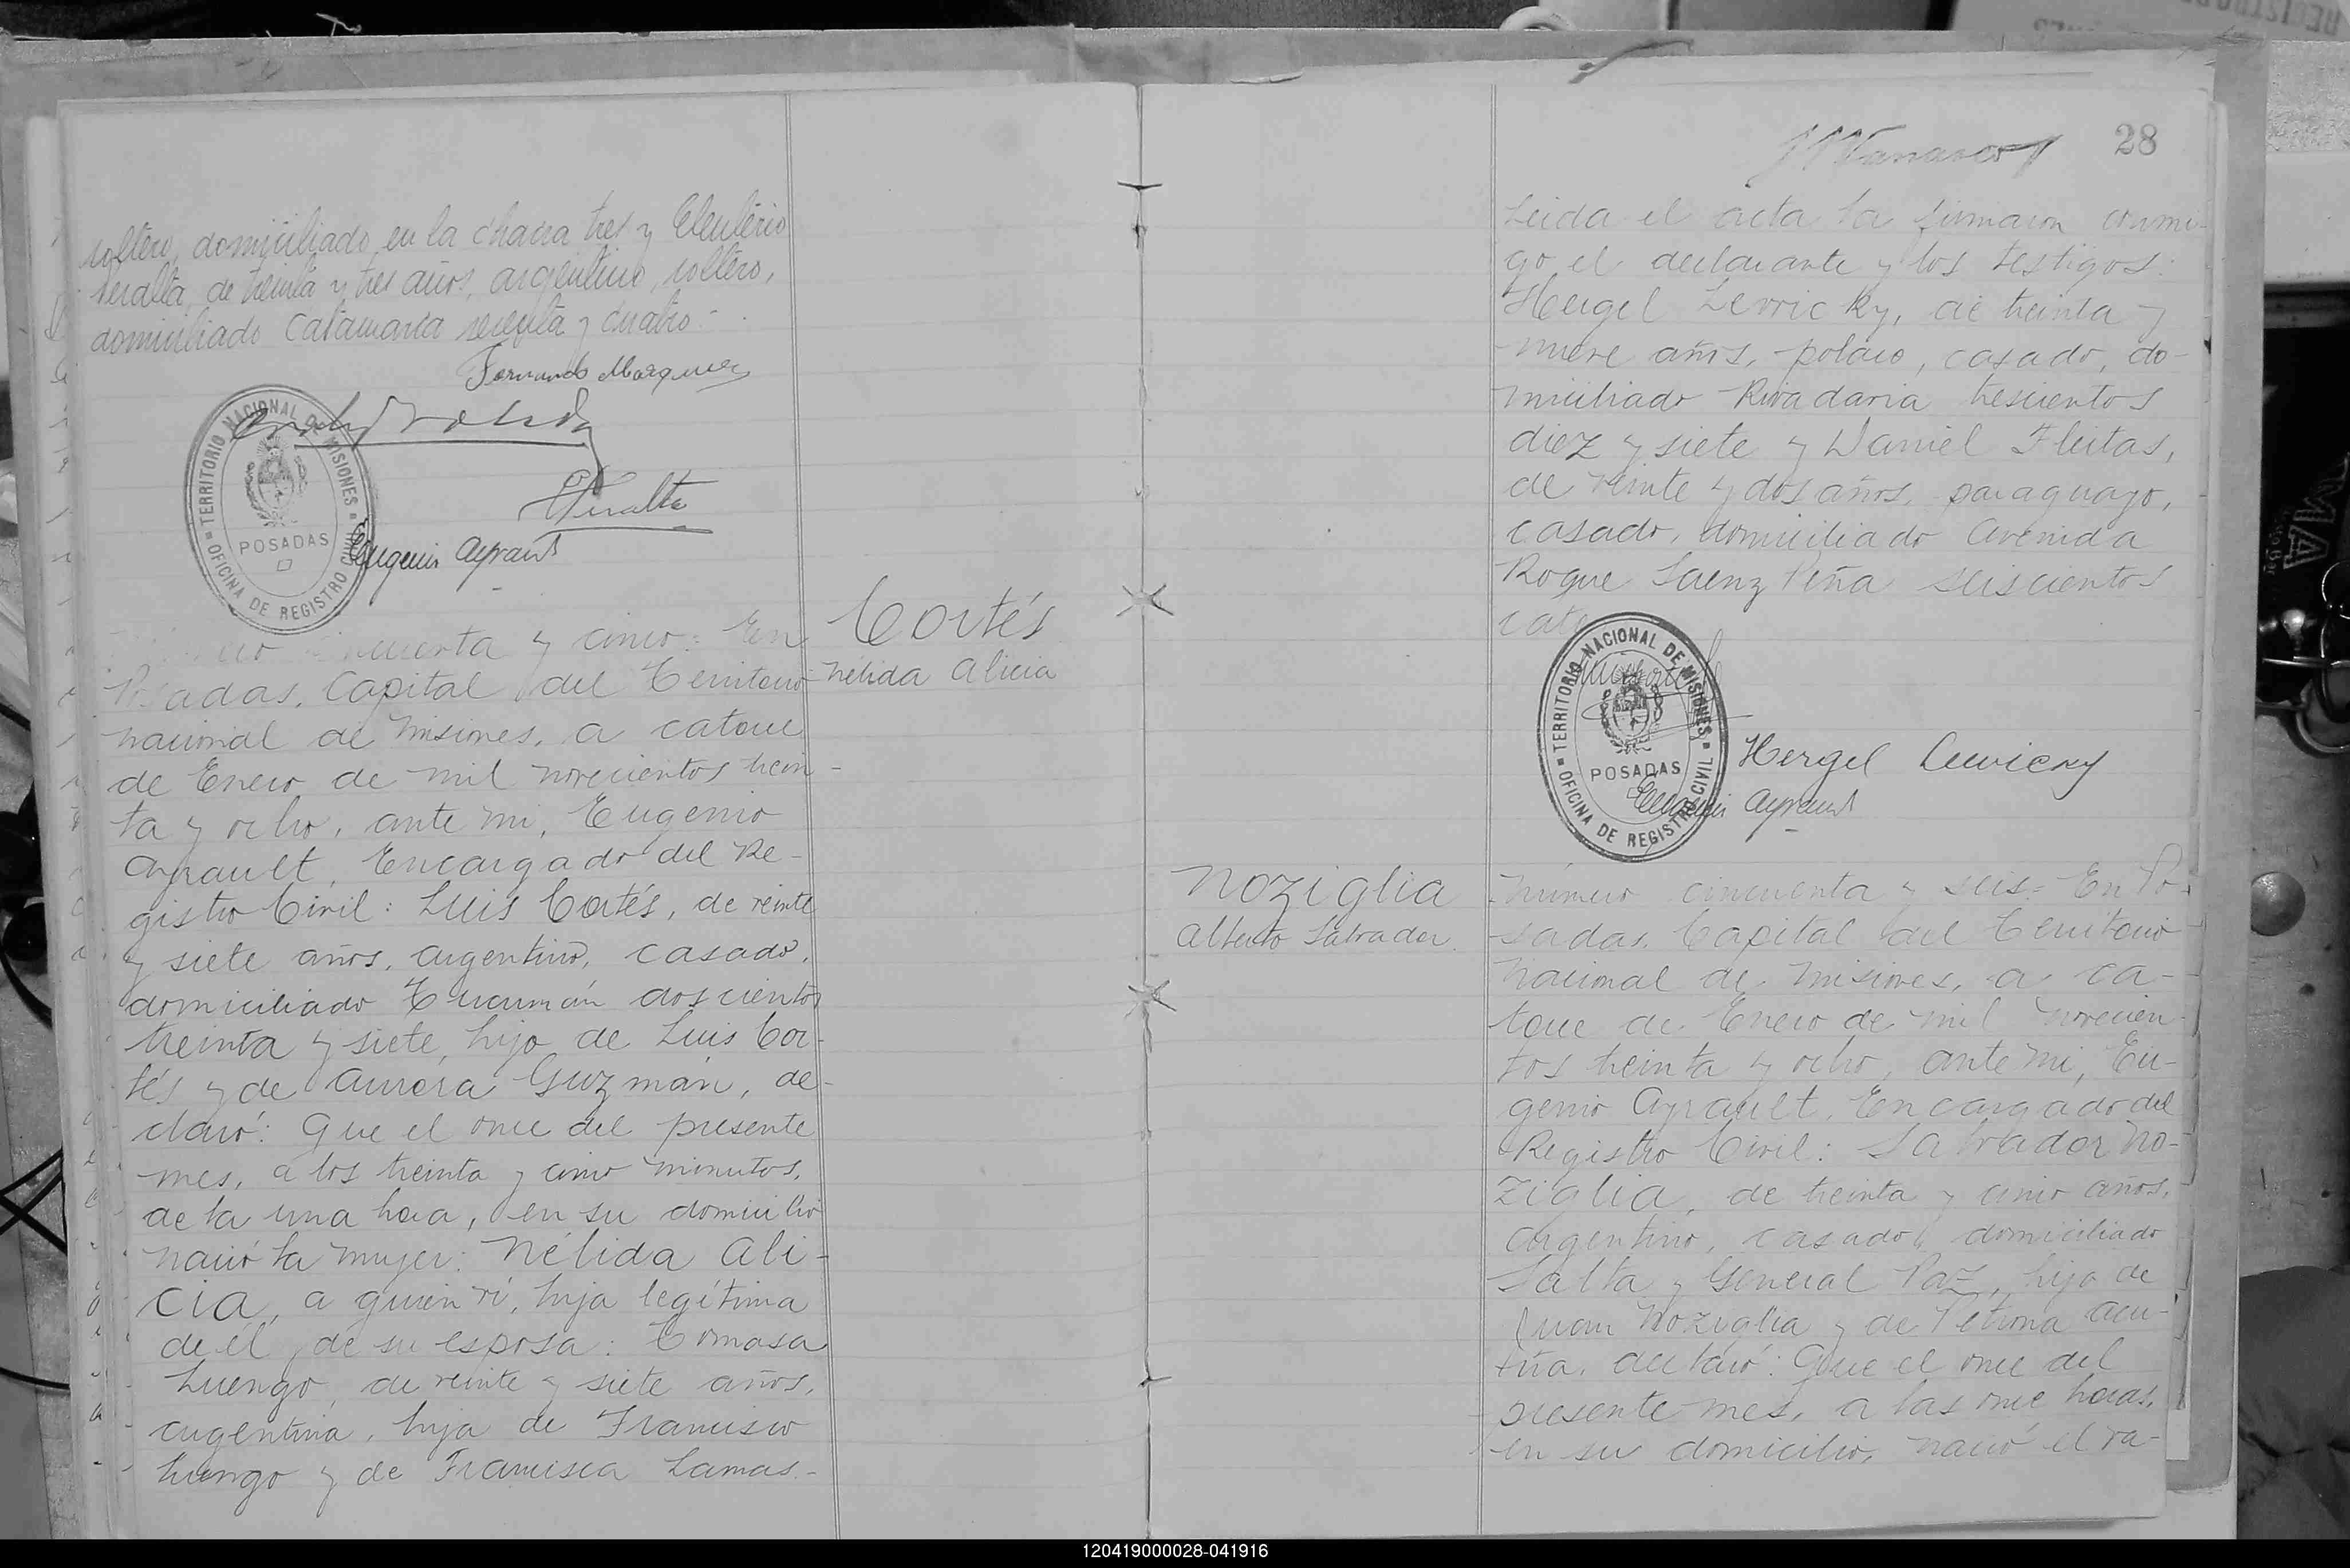 soltero, domiciliado en la chacra tres y Eleuterio
Peralta, de treinta y tres años, argentino, soltero,
domiciliado Catamarca sesenta y cuatro.-
Fernando Marquez
TERRITORIO NACIONAL DE MISIONES
POSADAS
OFICINA DE REGISTRO CIVIL
EPeralta
Eugenio Ayrault
cuenta y cinco: En
Posadas, Capital del Territorio
Nacional de Misiones, a catorce
de Enero de mil novecientos trein-
ta y ocho, ante mi, Eugenio
Ayrault, Encargado del Re-
gistro Civil: Luis Cortés, de veinte
y siete años, argentino, casado,
domiciliado Tucumán doscientos
treinta y siete, hijo de Luis Cor-
tés y de Aurora Guzmán, de-
claró: Que el once del presente
mes, a los treinta y cinco minutos,
de la una hora, en su domicilio
nació la mujer: Nélida Ali-
cia, a quien ví, hija legítima
de él y de su esposa: Tomasa
Luengo, de veinte y siete años,
argentina, hija de Francisco
Luengo y de Francisca Lamas.-
Cortés
Nélida Alicia
28
Leida el acta la firmaron conmi-
go el declarante y los testigos:
Hergel Lewicky, de treinta y
nueve años, polaco, casado, do-
miciliado Rivadavia trescientos
diez y siete y Daniel Fleitas,
de veinte y dos años, paraguayo,
casado, domiciliado Avenida
Roque Saenz Peña seiscientos
cato
TERRITORIO NACIONAL DE MISIONES
POSADAS
OFICINA DE REGISTRO CIVIL
Hergel Lewicky
Eugenio Ayrault
Noziglia
Alberto Salvador.
Número cincuenta y seis: En Po-
sadas, Capital del Territorio
Nacional de Misiones, a ca-
torce de Enero de mil novecien-
tos treinta y ocho, ante mi, Eu-
genio Ayrault, Encargado del
Registro Civil: Salvador No-
ziglia, de treinta y cinco años,
argentino, casado, domiciliado
Salta y General Paz, hijo de
Juan Noziglia y de Petrona Acu-
ña, declaró: Que el once del
presente mes, a las once horas,
en su domicilio, nació el va-
120419000028-041916